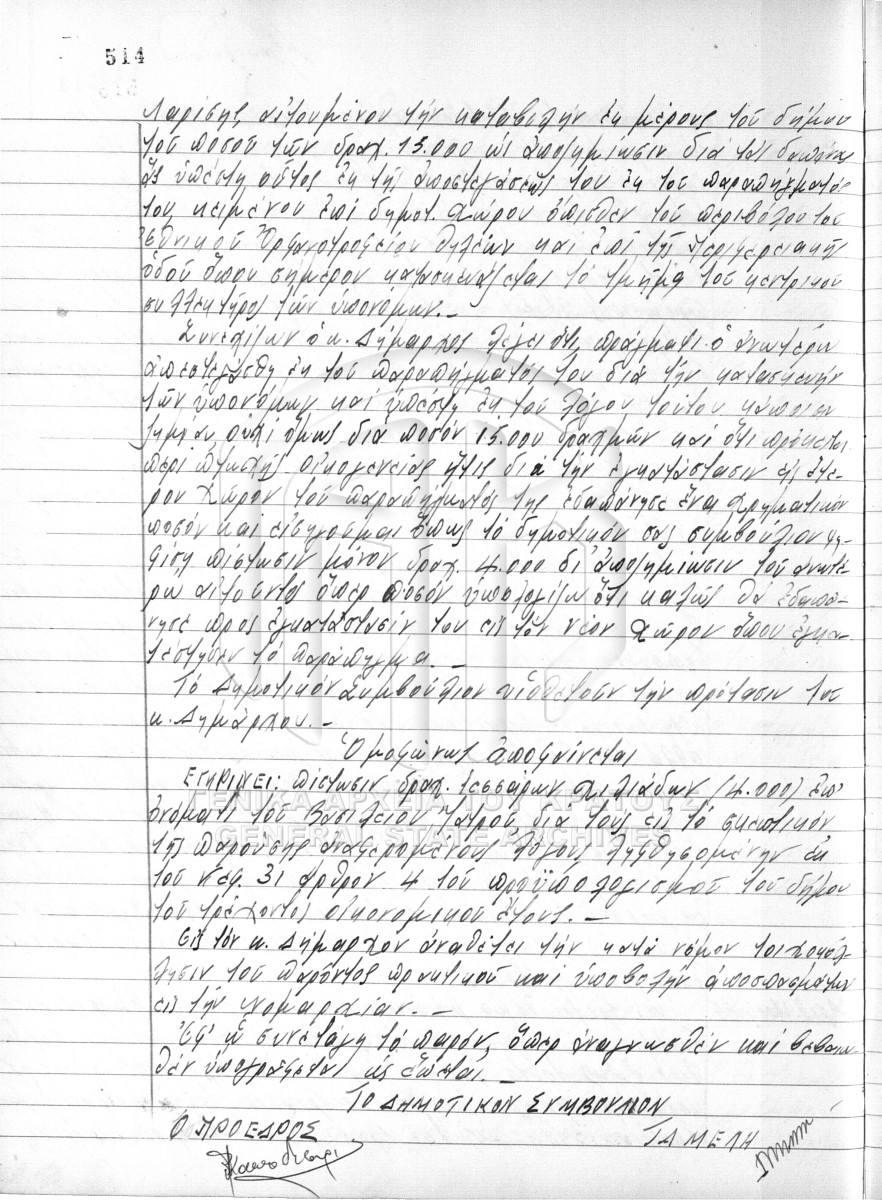 514
Λαρίσης, αἰτουμένου τὴν καταβολὴν ἐκ μέρους τοῦ δήμου
τοῦ ποσοῦ τῶν δραχ. 15.000 ὡς ἀποζημίωσιν διὰ τὰς δαπάνας
ἃς ὑπέστη οὗτος ἐκ τῆς ἀποστεγάσεώς του ἐκ τοῦ παραπήγματός
του κειμένου ἐπὶ δημοτ. χώρου ὄπισθεν τοῦ περιβόλου τοῦ
Ἐθνικοῦ Ὀρφανοτροφείου θηλέων καὶ ἐπὶ τῆς περιφερειακῆς
ὁδοῦ ὅπου σήμερον κατασκευάζεται τὸ τμῆμα τοῦ κεντρικοῦ
συλλεκτῆρος τῶν ὑπονόμων.—
Συνεχίζων ὁ κ. Δήμαρχος λέγει ὅτι, πράγματι ὁ ἀνωτέρω
ἀπεστεγάσθη ἐκ τοῦ παραπήγματός του διὰ τὴν κατασκευὴν
τῶν ὑπονόμων καὶ ὑπέστη ἐκ τοῦ λόγου τούτου κάποιαν
ζημίαν οὐχὶ ὅμως διὰ ποσὸν 15.000 δραχμῶν καὶ ὅτι πρόκειται
περὶ πτωχῆς οἰκογενείας ἥτις διὰ τὴν ἐγκατάστασιν εἰς ἕτε-
ρον χῶρον τοῦ παραπήγματός της ἐδαπάνησε ἕνα χρηματικὸν
ποσὸν καὶ εἰσηγοῦμαι ὅπως τὸ δημοτικόν σας συμβούλιον ψη-
φίσῃ πίστωσιν μόνον δραχ. 4.000 δι' ἀποζημίωσιν τοῦ ἀνωτέ-
ρω αἰτοῦντος ὅπερ ποσὸν ὑπολογίζω ὅτι καλῶς θὰ ἐδαπά-
νησε πρὸς ἐγκατάστασίν του εἰς τὸν νέον χῶρον ὅπου ἐγκα-
τέστησεν τὸ παράπηγμα.—
Τὸ Δημοτικὸν Συμβούλιον υἱοθετοῦν τὴν πρότασιν τοῦ
κ. Δημάρχου.—
Ὁμοφώνως ἀποφαίνεται
ΕΓΚΡΙΝΕΙ: πίστωσιν δραχ. τεσσάρων χιλιάδων (4.000) ἐπ'
ὀνόματι τοῦ Βασιλείου διὰ τοὺς εἰς τὸ σκεπτικὸν
τῆς παρούσης ἀναφερομένους λόγους ληφθησομένην ἐκ
τοῦ κεφ. 31 ἄρθρον 4 τοῦ προϋπολογισμοῦ τοῦ δήμου
τοῦ τρέχοντος οἰκονομικοῦ ἔτους.—
Εἰς τὸν κ. Δήμαρχον ἀναθέτει τὴν κατὰ νόμον τοιχοκόλ-
λησιν τοῦ παρόντος πρακτικοῦ καὶ ὑποβολὴν ἀποσπασμάτων
εἰς τὴν Νομαρχίαν.—
Ἐφ' ᾧ συνετάγη τὸ παρόν, ὅπερ ἀναγνωσθὲν καὶ βεβαιω-
θὲν ὑπογράφεται ὡς ἕπεται.—
ΤΟ ΔΗΜΟΤΙΚΟΝ ΣΥΜΒΟΥΛΙΟΝ
Ο ΠΡΟΕΔΡΟΣ ΤΑ ΜΕΛΗ
ΓΕΝΙΚΑ ΑΡΧΕΙΑ ΤΟΥ ΚΡΑΤΟΥΣ
GENERAL STATE ARCHIVES